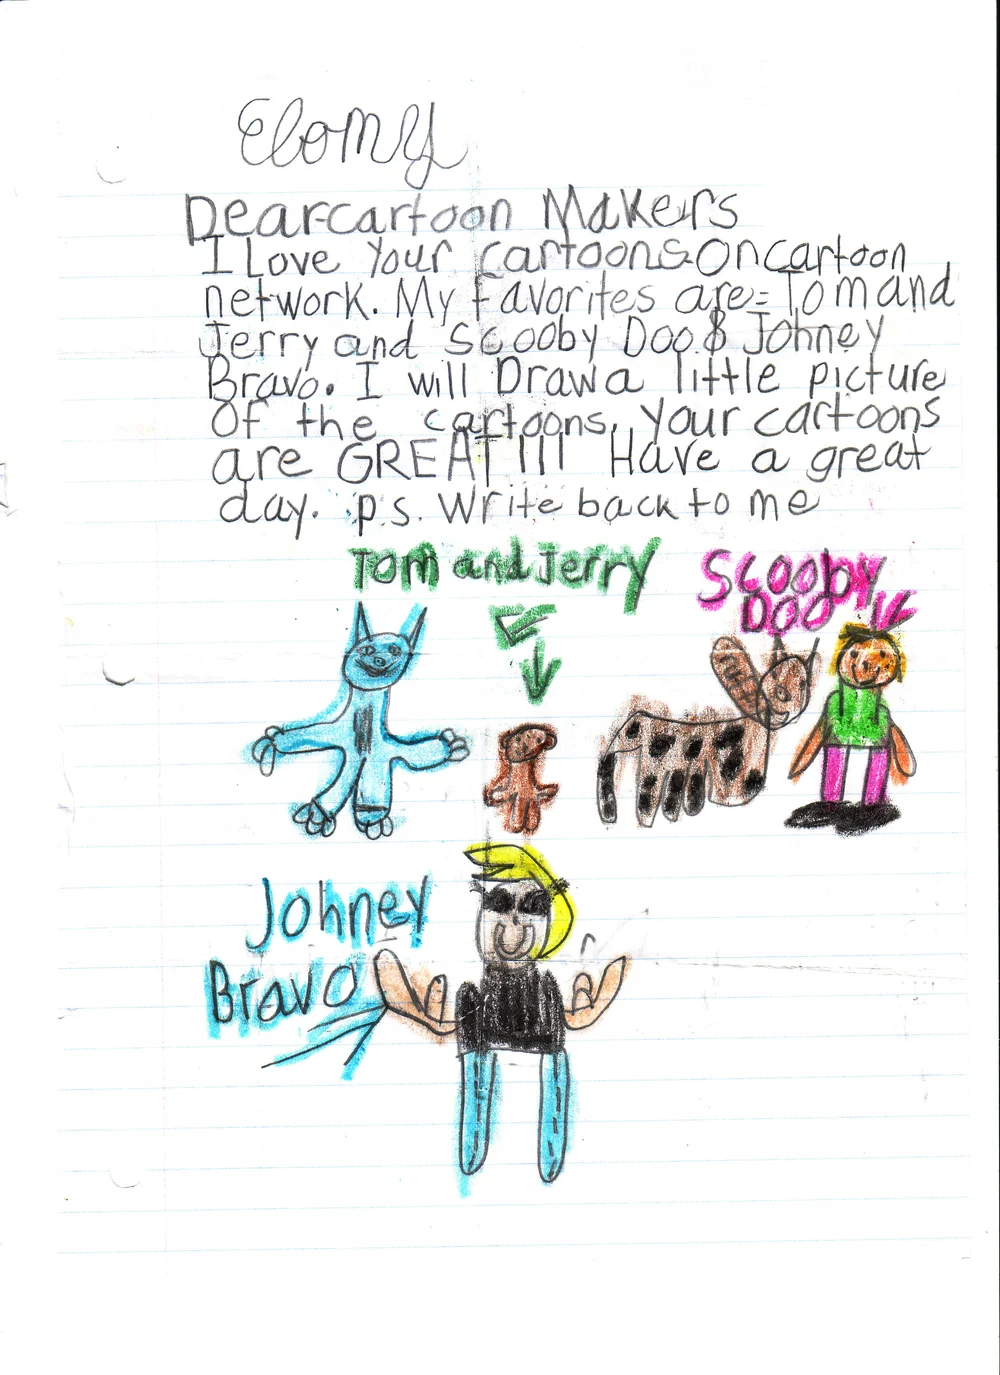 Ebony
Dear cartoon Makers
I Love Your cartoons on cartoon
network. My Favorites are= Tom and
Jerry and Scooby Doo & Johney
Bravo. I will Draw a little picture
Of the cartoons, your cartoons
are GREAT!!! Have a great
day. p.s. Write back to me
Tom and Jerry
Scooby
Doo
Johney
Bravo